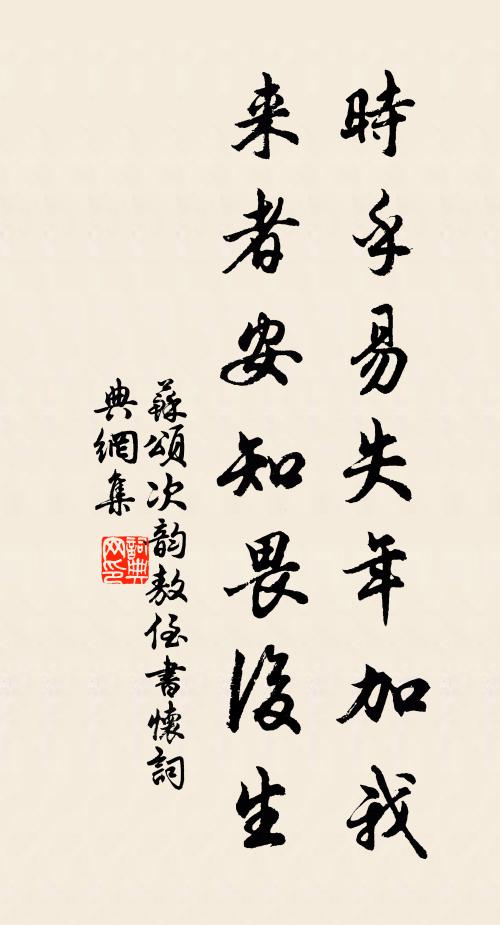 時乎易失年加我
来者安知畏後生
蘇頌次韵敖侄書懷詞
典網集
詞典
网印